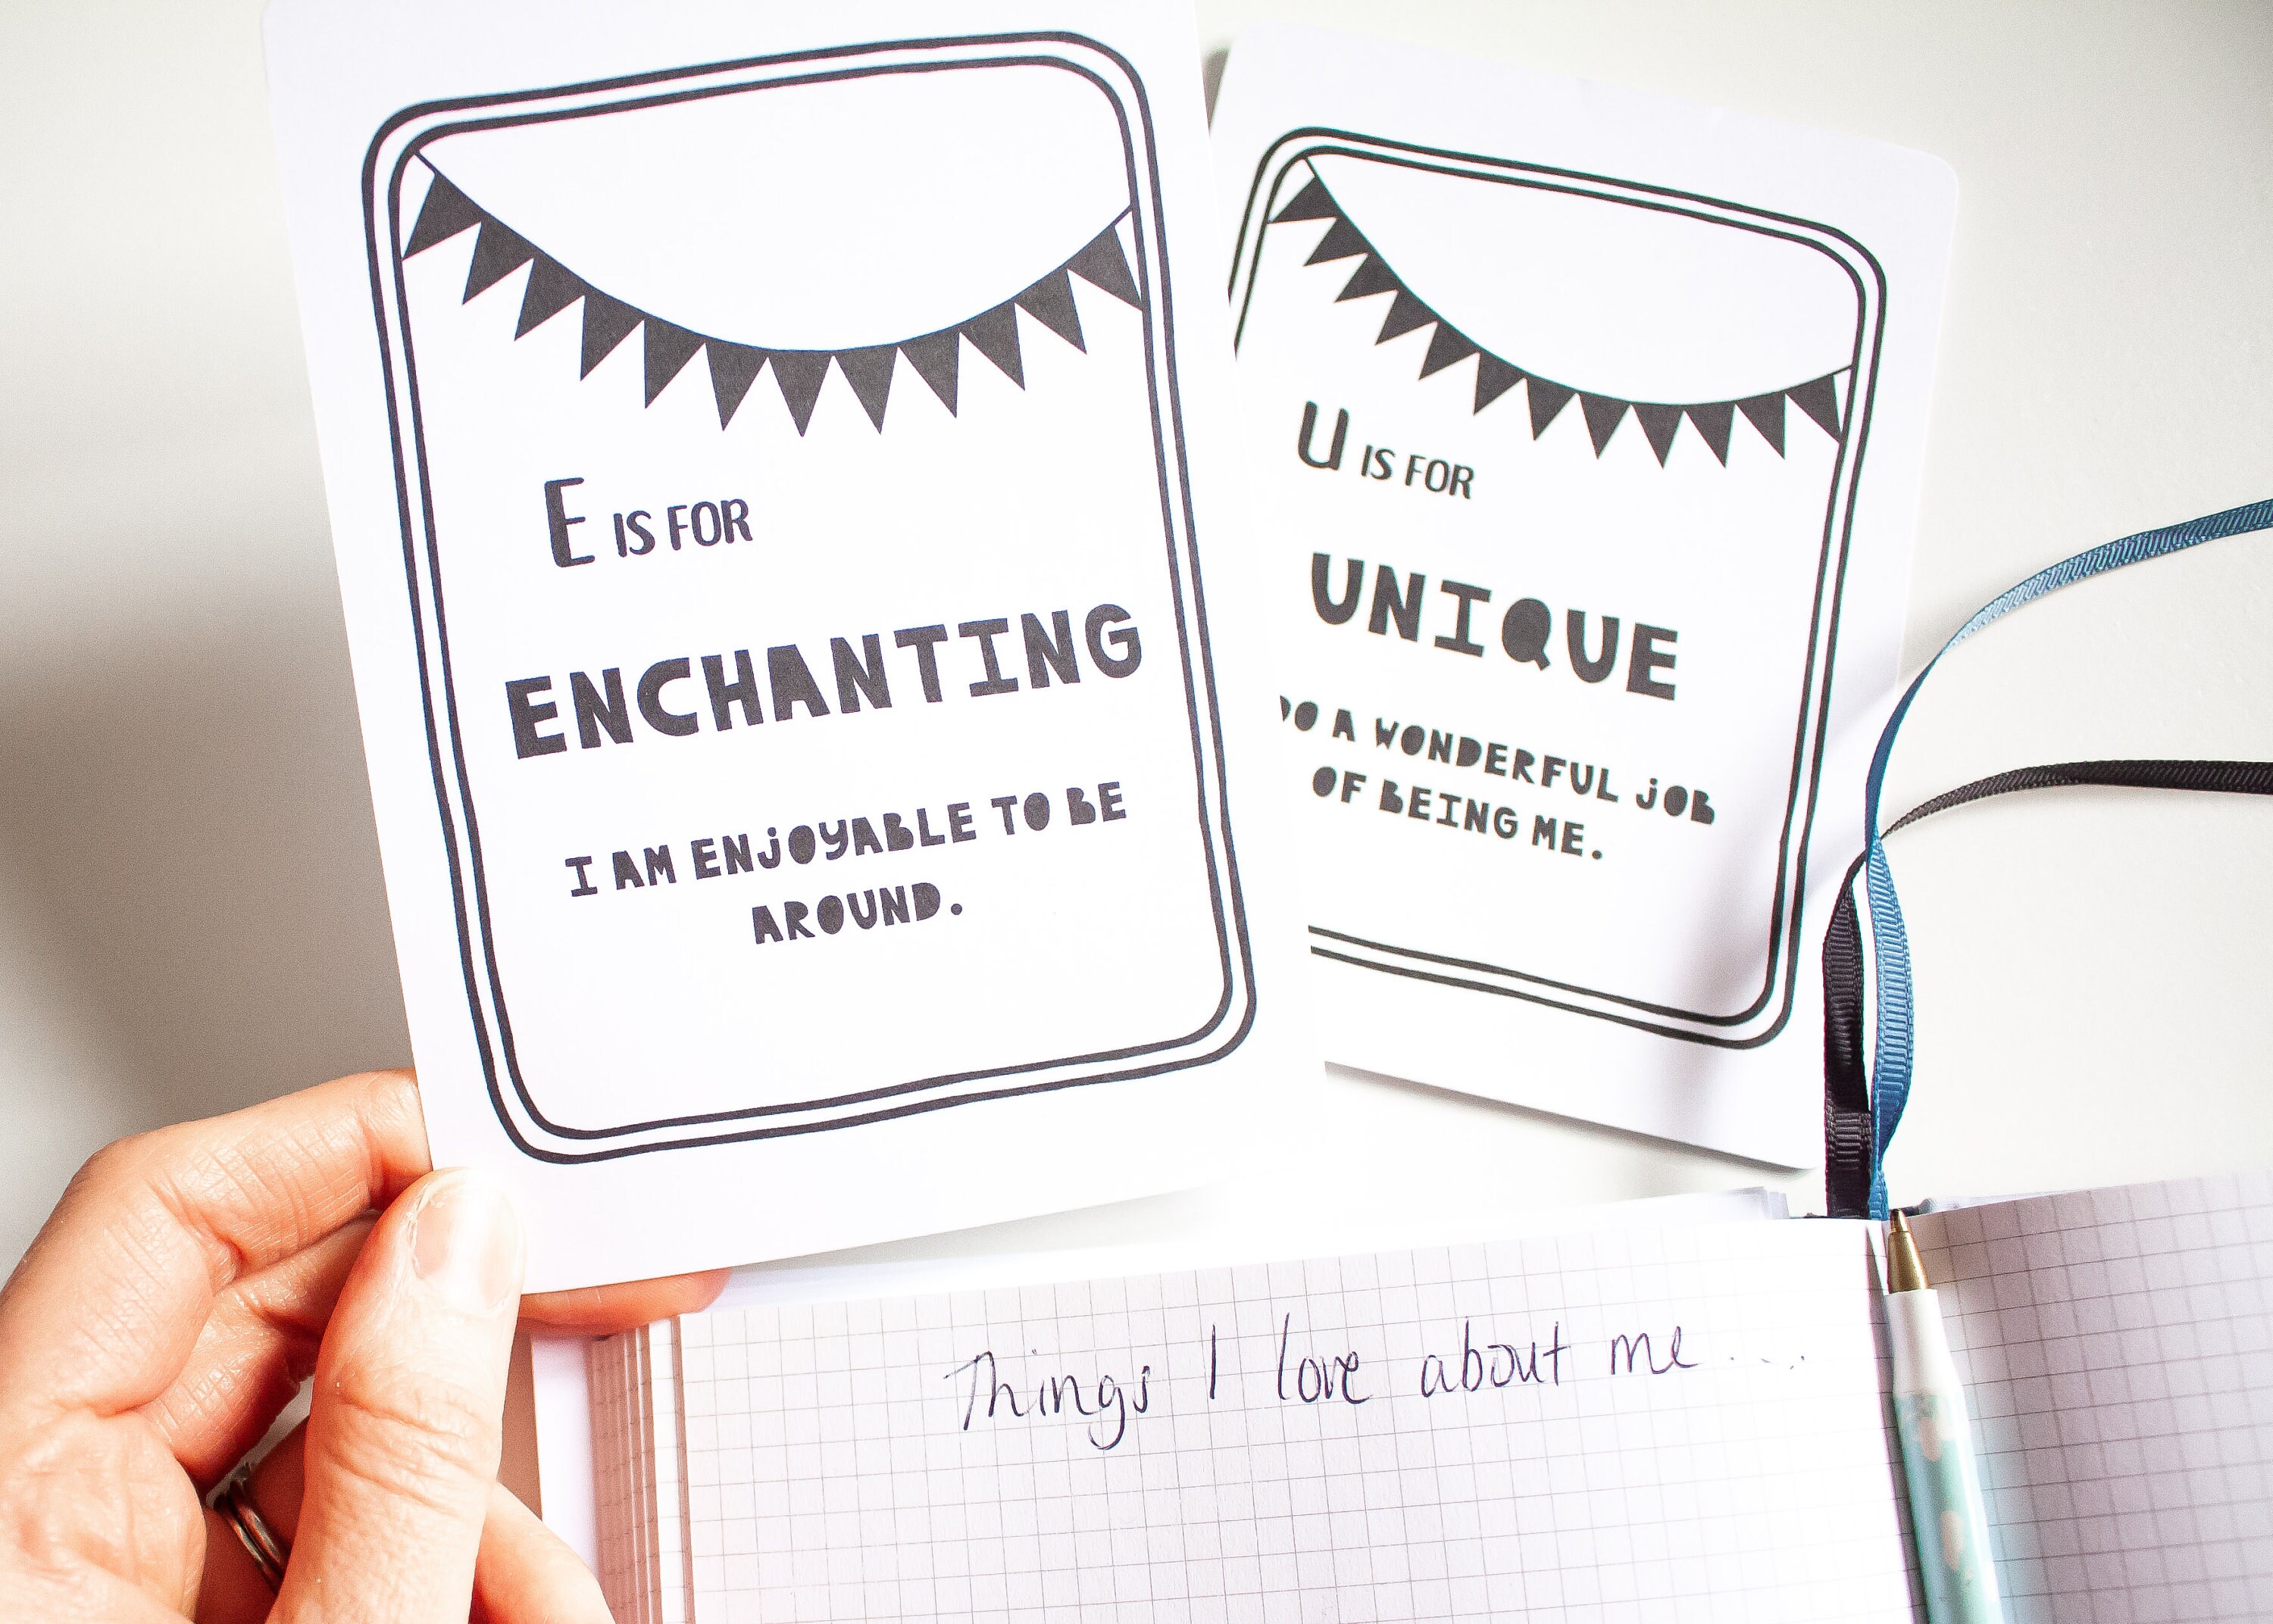 E IS FOR
ENCHANTING
I AM ENJOYABLE TO BE
AROUND.
U IS FOR
UNIQUE
DO A WONDERFUL JOB
OF BEING ME.
Things I love about me....